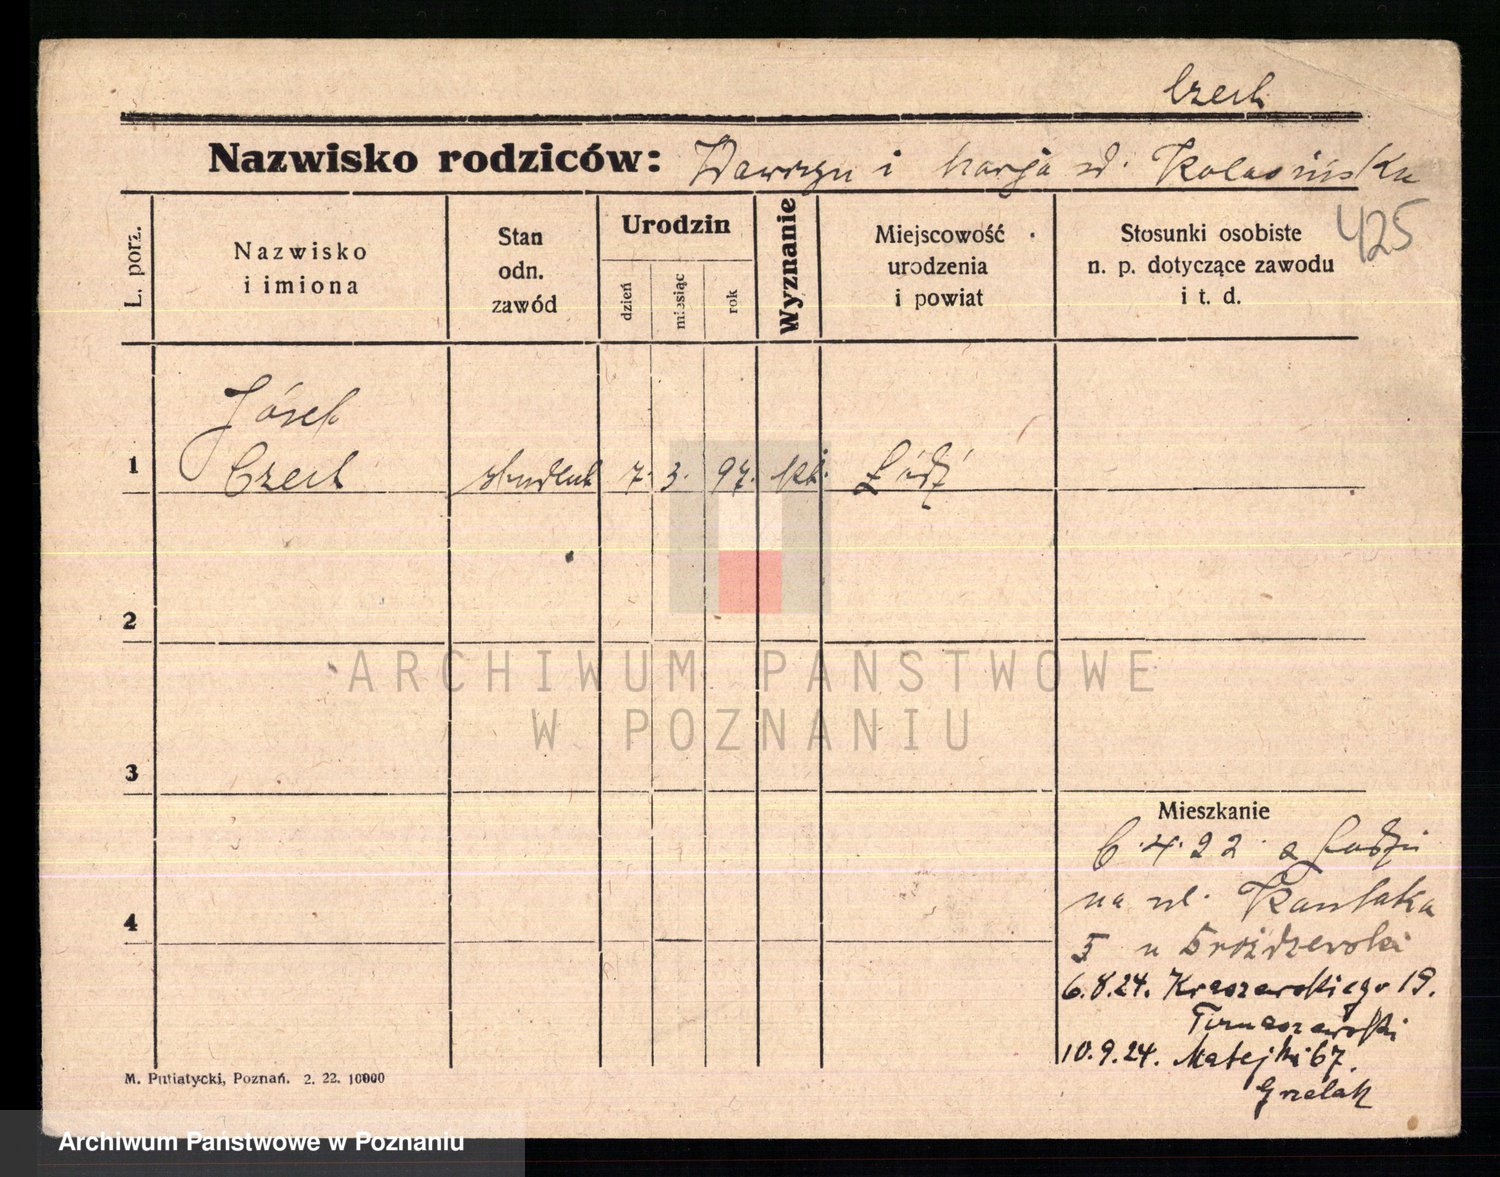 Czech
Nazwisko rodziców: Wawrzyn i Marja zd. Kolasińska
425
L. porz.
Nazwisko i imiona
Stan odn. zawód
Urodzin
dzień
miesiąc
rok
Wyznanie
Miejscowość urodzenia i powiat
Stosunki osobiste n. p. dotyczące zawodu i t. d.
Józef
1 Czech student 7. 3. 97. kt. Łódź
2
3
4
Mieszkanie
6.4.22 z Łodzi
na ul.
u
6.8.24. Kraszewskiego 19.
Tomaszewski
10.9.24. Matejki 67.
Grzelak
M. Putiatycki, Poznań. 2. 22. 10000
ARCHIWUM PAŃSTWOWE
W POZNANIU
Archiwum Państwowe w Poznaniu